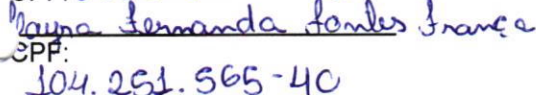 Mayra Fernanda Fontes França
CPF:
104.251.565-40